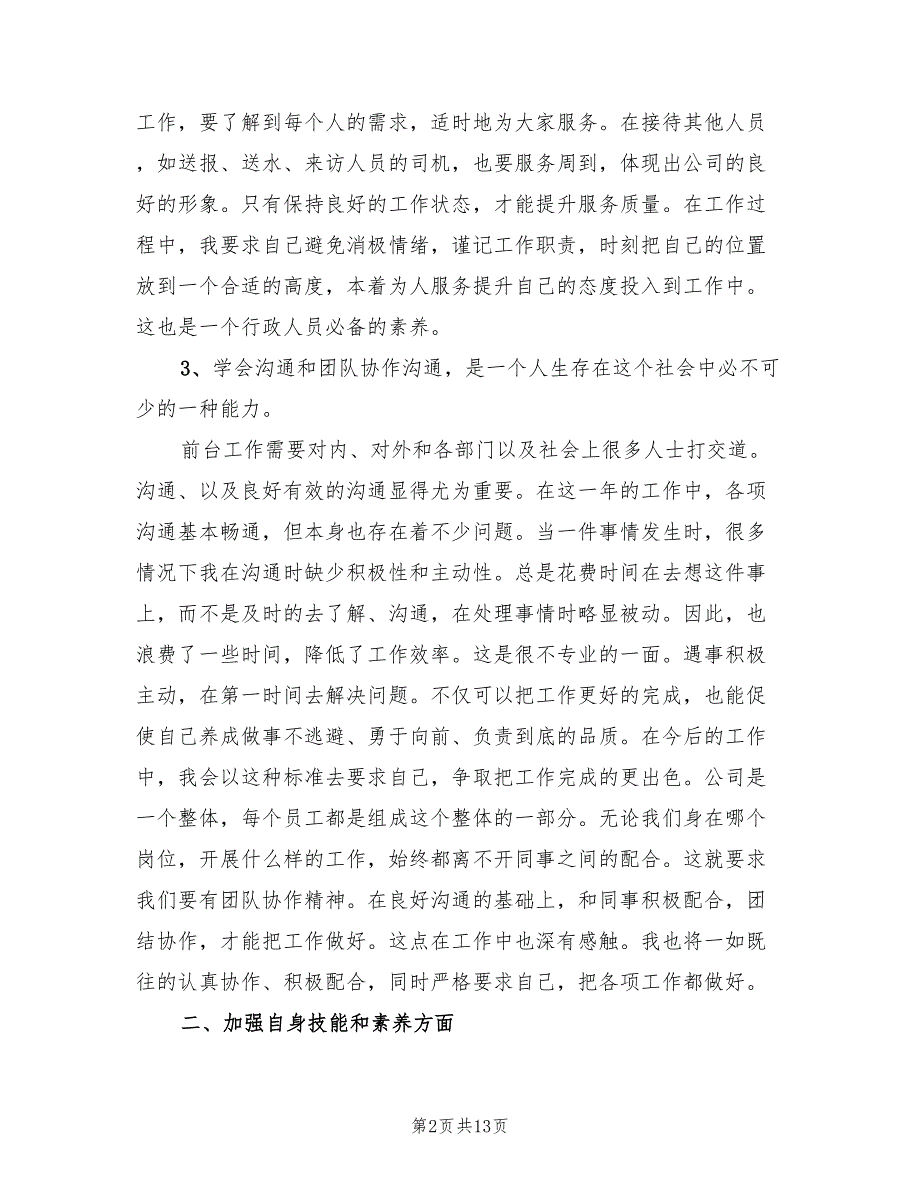 工作，要了解到每个人的需求，适时地为大家服务。在接待其他人员
，如送报、送水、来访人员的司机，也要服务周到，体现出公司的良
好的形象。只有保持良好的工作状态，才能提升服务质量。在工作过
程中，我要求自己避免消极情绪，谨记工作职责，时刻把自己的位置
放到一个合适的高度，本着为人服务提升自己的态度投入到工作中。
这也是一个行政人员必备的素养。
3、学会沟通和团队协作沟通，是一个人生存在这个社会中必不可
少的一种能力。
前台工作需要对内、对外和各部门以及社会上很多人士打交道。
沟通、以及良好有效的沟通显得尤为重要。在这一年的工作中，各项
沟通基本畅通，但本身也存在着不少问题。当一件事情发生时，很多
情况下我在沟通时缺少积极性和主动性。总是花费时间在去想这件事
上，而不是及时的去了解、沟通，在处理事情时略显被动。因此，也
浪费了一些时间，降低了工作效率。这是很不专业的一面。遇事积极
主动，在第一时间去解决问题。不仅可以把工作更好的完成，也能促
使自己养成做事不逃避、勇于向前、负责到底的品质。在今后的工作
中，我会以这种标准去要求自己，争取把工作完成的更出色。公司是
一个整体，每个员工都是组成这个整体的一部分。无论我们身在哪个
岗位，开展什么样的工作，始终都离不开同事之间的配合。这就要求
我们要有团队协作精神。在良好沟通的基础上，和同事积极配合，团
结协作，才能把工作做好。这点在工作中也深有感触。我也将一如既
往的认真协作、积极配合，同时严格要求自己，把各项工作都做好。
二、加强自身技能和素养方面
第2页共13页